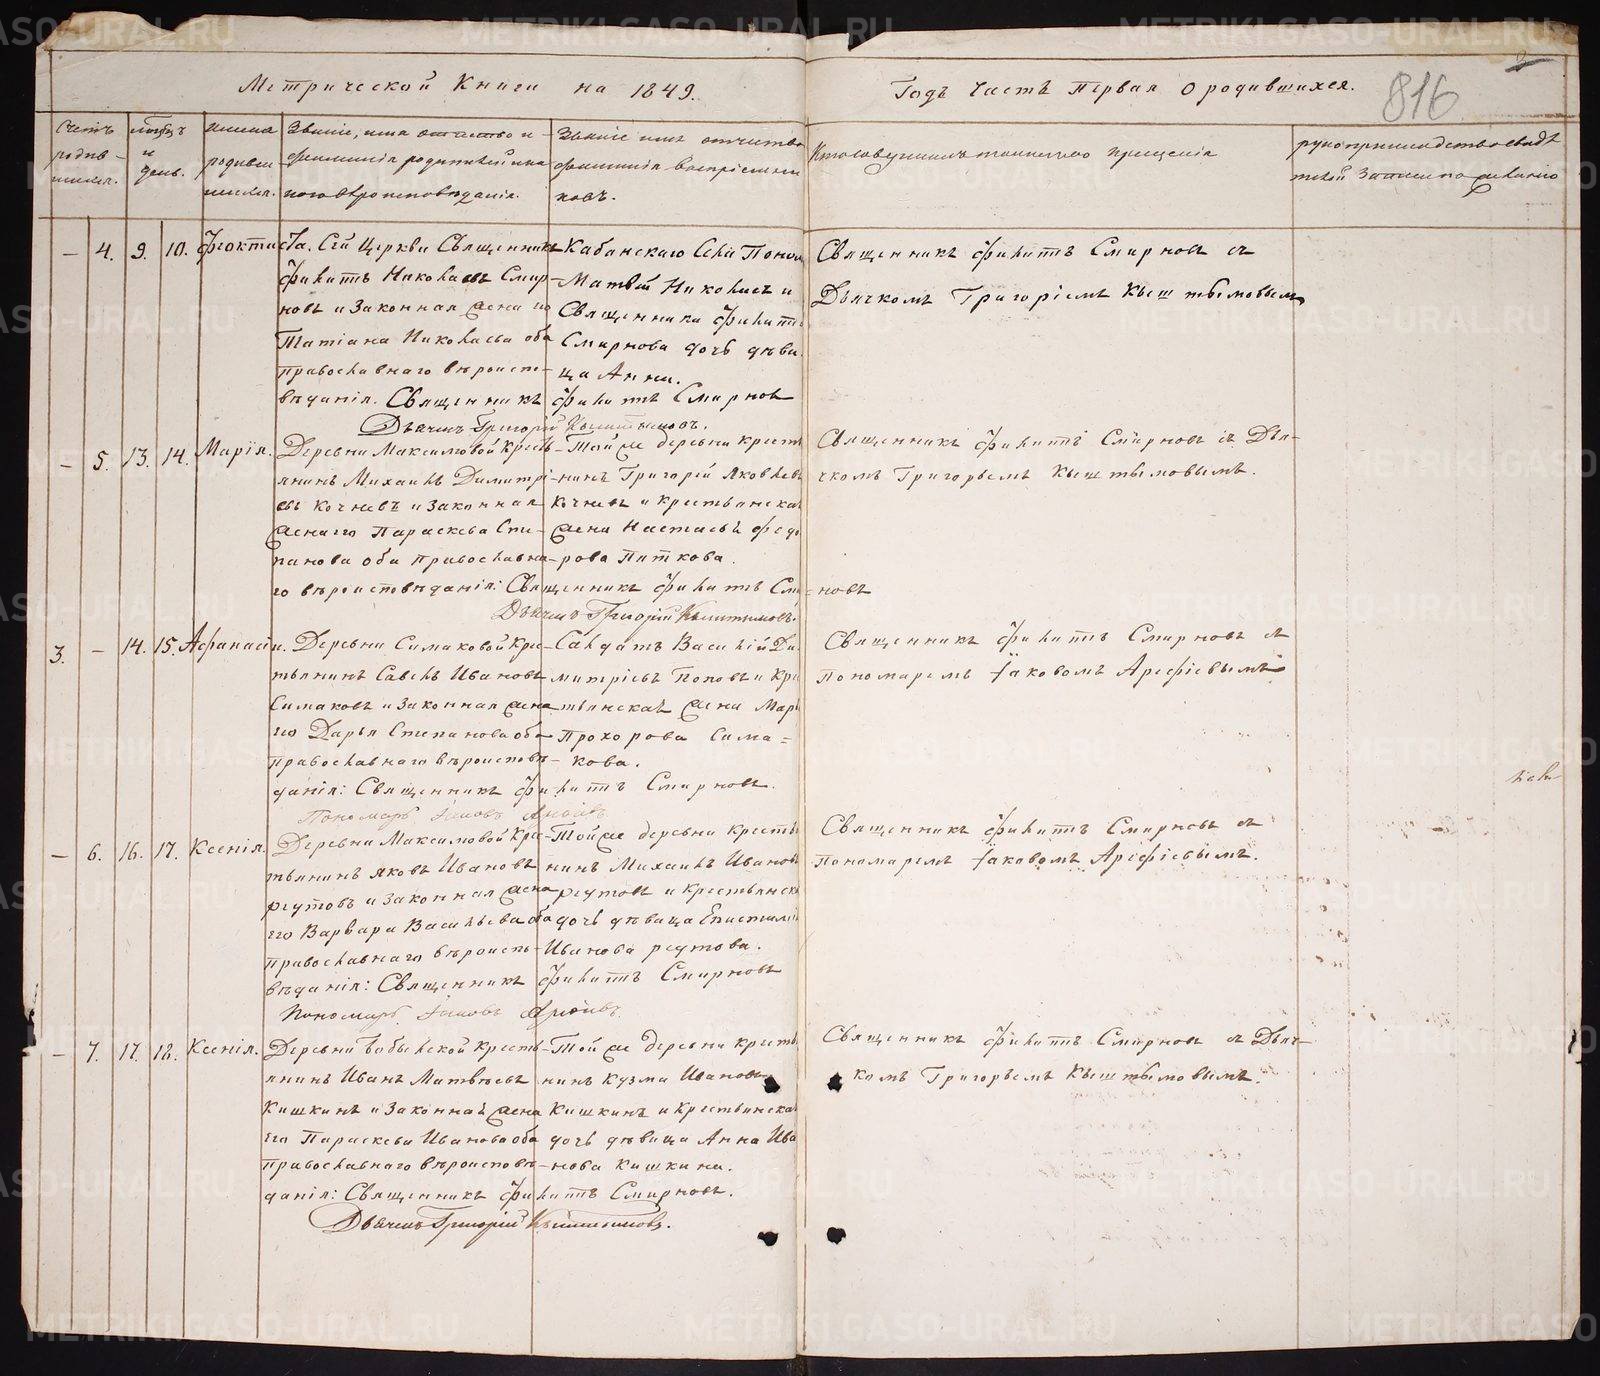 Метрической Книги на 1849.
Годъ Часть Первая О родившихся.
816
Счетъ родив-шихся.
день.
имена родившихся.
Званіе, имя отчество и фамилія родителей и какого вѣроисповѣданія.
Званіе имя отчество фамилія воспріемниковъ.
Кто совершалъ таинство крещенія
рукоприкладство свидѣтелей записи по желанію
– 4. 9. 10. Феоктиста.
Сей Церкви Священникъ
Филиппъ Николаевъ Смир-
новъ и Законная жена его
Татіана Николаева оба
православнаго вѣроиспо-
вѣданія. Священникъ Филиппъ Смирновъ
Дьячекъ Григорій Кыштымовъ.
Кабанскаго Села Поном
Матвѣй Николаевъ и
Священника Филиппа
Смирнова дочь дѣви
ца Анна.
Священникъ Филиппъ Смирновъ съ
Дьячкомъ Григоріемъ Кыштымовымъ
– 5. 13. 14. Марія.
Деревни Максимовой Кресть-
янинъ Михаилъ Димитрі-
евъ Кочневъ и Законная
жена его Параскева Сте-
панова оба православна-
го вѣроисповѣданія: Священникъ Филиппъ Смир=новъ
Дьячекъ Григорій Кыштымовъ.
Той же деревни крестья
нинъ Григорій Яковлевъ
Кочневъ и крестьянская
жена Настасья Федо
рова Пяткова.
Священникъ Филиппъ Смирновъ съ Дья-
чкомъ Григорьемъ Кыштымовымъ.
3. – 14. 15. Афанасій.
Деревни Симаковой Кре-
стьянинъ Савелъ Ивановъ
Симаковъ и Законная жена
его Дарья Степанова оба
православнаго вѣроисповѣ-
данія: Священникъ Филиппъ Смирновъ.
Пономарь Іаковъ Арефіевъ
Салдатъ Василій Ди
митріевъ Поповъ и Кре
стьянская жена Марья
Прохорова Сима=
кова.
Священникъ Филиппъ Смирновъ съ
Пономаремъ Іаковомъ Арефіевымъ
– 6. 16. 17. Ксенія.
Деревни Максимовой Кре-
стьянинъ Яковъ Ивановъ
Реутовъ и Законная жена
его Варвара Васильева оба
православнаго вѣроиспо-
вѣданія: Священникъ Филиппъ Смирновъ
Пономарь Іаковъ Арефіевъ.
Той же деревни крестья
нинъ Михаилъ Ивановъ
Реутовъ и крестьянская
дочь дѣвица Епистимія
Иванова Реутова.
Священникъ Филиппъ Смирновъ съ
Пономаремъ Іаковомъ Арефіевымъ.
– 7. 17. 18. Ксенія.
Деревни Бобыльской Кресть-
янинъ Иванъ Матвѣевъ
Кишкинъ и Законная жена
его Параскева Иванова оба
православнаго вѣроисповѣ-
данія: Священникъ Филиппъ Смирновъ.
Дьячекъ Григорій Кыштымовъ.
Той же деревни крестья
нинъ Кузма Ивановъ
Кишкинъ и Крестьянская
дочь дѣвица Анна Ива
нова Кишкина.
Священникъ Филиппъ Смирновъ съ Дьяч-
комъ Григорьемъ Кыштымовымъ.
METRIKI.GASO-URAL.RU